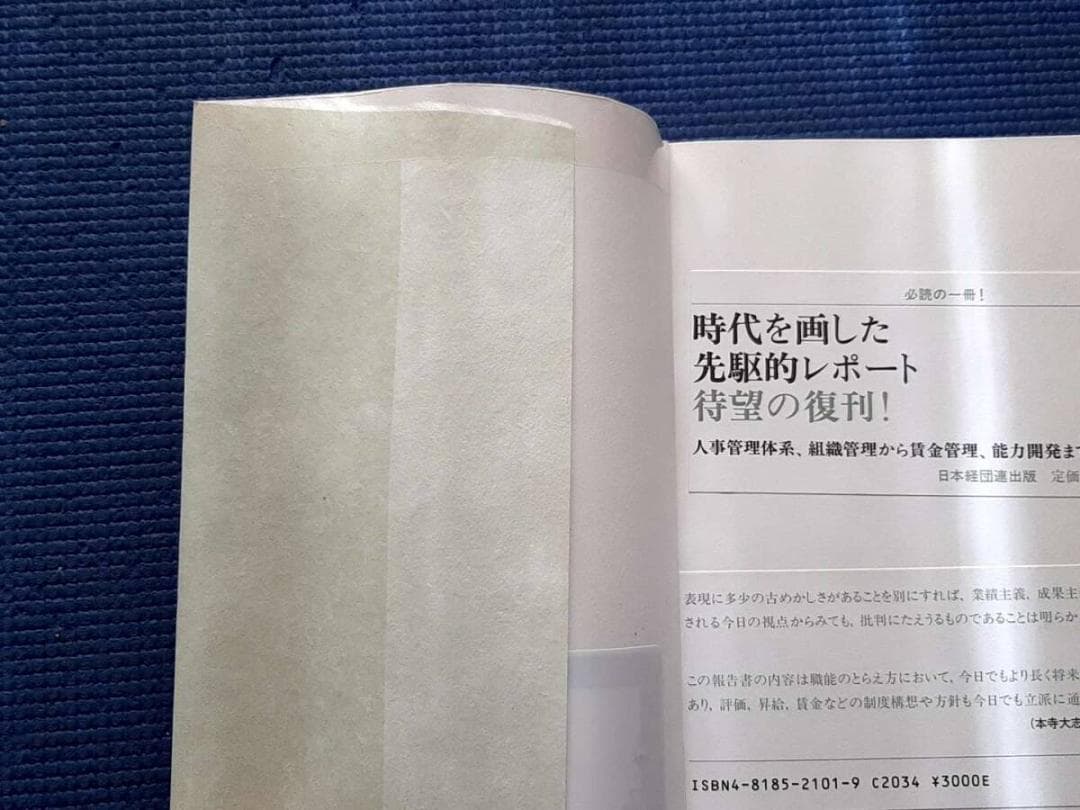 必読の一冊!
時代を画した
先駆的レポート
待望の復刊!
人事管理体系、組織管理から賃金管理、能力開発まで
日本経団連出版 定価
表現に多少の古めかしさがあることを別にすれば、業績主義、成果主
される今日の視点からみても、批判にたえうるものであることは明らか
この報告書の内容は職能のとらえ方において、今日でもより長く将来
あり、評価、昇給、賃金などの制度構想や方針も今日でも立派に通
(本寺大志
ISBN4-8185-2101-9 C2034 ¥3000E